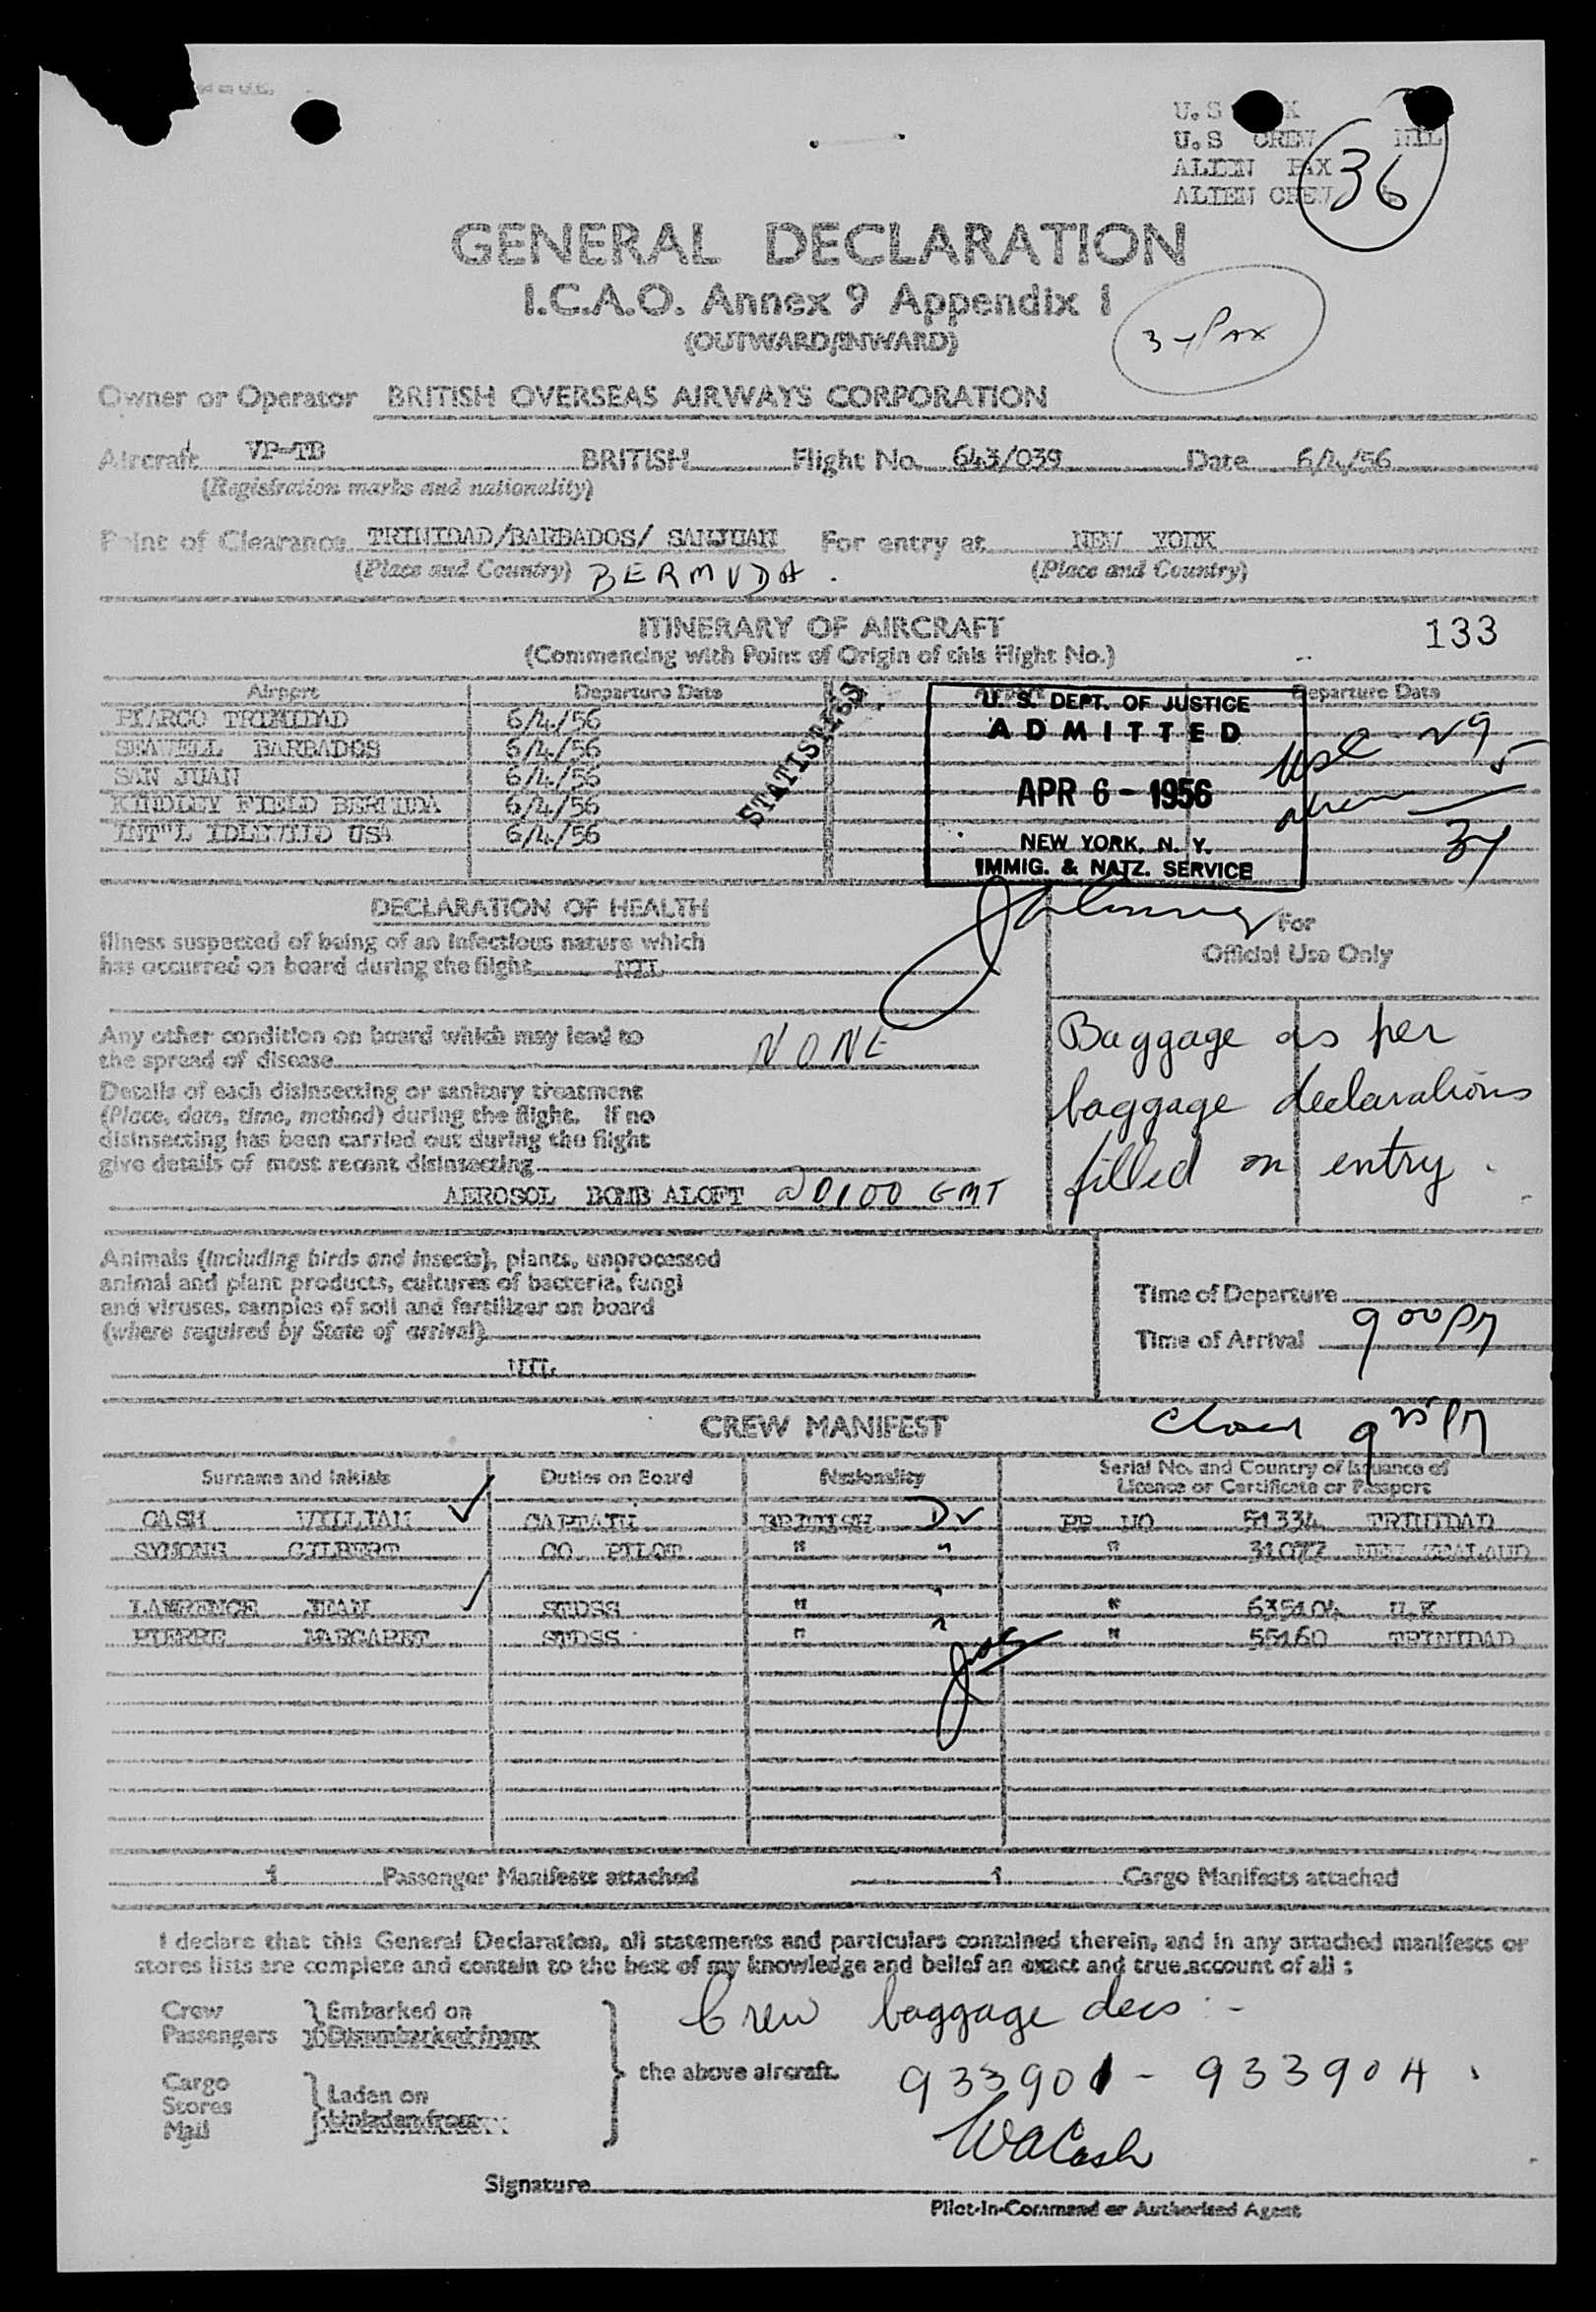 U.S
U.S CREW NIL
ALIEN PAX
ALIEN CREW
36
GENERAL DECLARATION
I.C.A.O. Annex 9 Appendix 1
(OUTWARD/INWARD)
34 PAX
Owner or Operator BRITISH OVERSEAS AIRWAYS CORPORATION
Aircraft VP-TB BRITISH Flight No. 643/039 Date 6/4/56
(Registration marks and nationality)
Point of Clearance TRINIDAD/BARBADOS/ SANJUAN For entry at NEW YORK
(Place and Country) BERMUDA . (Place and Country)
ITINERARY OF AIRCRAFT 133
(Commencing with Point of Origin of this Flight No.)
Airport Departure Date Airport Departure Date
PIARCO TRINIDAD 6/4/56
SEAWELL BARBADOS 6/4/56
SAN JUAN 6/4/56
KINDLEY FIELD BERMUDA 6/4/56
INT"L IDLEWILD USA 6/4/56
STATISTICS
U. S. DEPT. OF JUSTICE
ADMITTED
APR 6 - 1956
NEW YORK, N. Y.
IMMIG. & NATZ. SERVICE
USC 29
alien 5
34
DECLARATION OF HEALTH
Illness suspected of being of an infectious nature which
has occurred on board during the flight NIL
Any other condition on board which may lead to
the spread of disease NONE
Details of each disinsecting or sanitary treatment
(Place, date, time, method) during the flight. If no
disinsecting has been carried out during the flight
give details of most recent disinsecting
AEROSOL BOMB ALOFT @ 0100 GMT
For
Official Use Only
Baggage as per
baggage declarations
filled on entry .
Animals (including birds and insects), plants, unprocessed
animal and plant products, cultures of bacteria, fungi
and viruses, samples of soil and fertilizer on board
(where required by State of arrival)
NIL
Time of Departure
Time of Arrival 9 00 PM
CREW MANIFEST
9 25 PM
Surname and Initials Duties on Board Nationality Serial No. and Country of Issuance of
Licence or Certificate or Passport
CASH WILLIAM CAPTAIN BRITISH D PP NO 51334 TRINIDAD
SYMONS GILBERT CO PILOT " " " 31077 NEW ZEALAND
LAWRENCE JEAN STDSS " " " 635104 U.K
PIERRE MARGARET STDSS " " " 55160 TRINIDAD
1 Passenger Manifests attached 1 Cargo Manifests attached
I declare that this General Declaration, all statements and particulars contained therein, and in any attached manifests or
stores lists are complete and contain to the best of my knowledge and belief an exact and true account of all :
Crew Embarked on
Passengers Disembarked from
Crew baggage decs :-
the above aircraft. 933901 - 933904 .
Cargo
Stores Laden on
Mail Unladen from
WACash
Signature
Pilot-in-Command or Authorised Agent